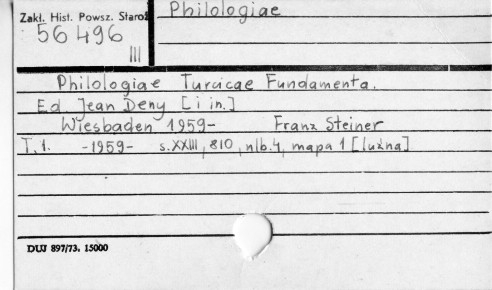 Zakł. Hist. Powsz. Staroż
Philologiae
56 496
III
Philologiae Turcicae Fundamenta.
Ed. Jean Deny [i in.]
Wiesbaden 1959- Franz Steiner
T.1. -1959- s.XXIII, 810, nlb.4, mapa 1 [luźna]
DUJ 897/73. 15000